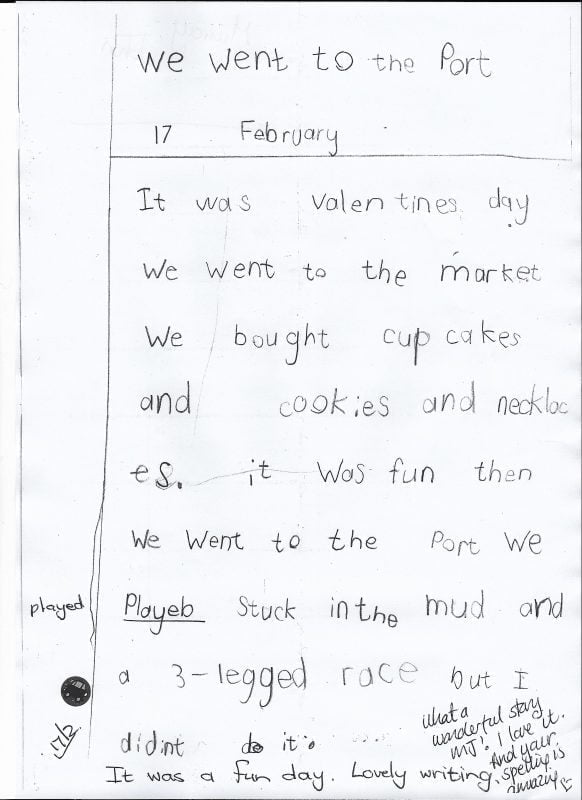 We went to the Port
17 February
It was valentines day
We went to the market
We bought cup cakes
and cookies and neckloc
es. it was fun then
We went to the Port We
played Playeb stuck in the mud and
a 3-legged race but I
17/2 didint do it.
It was a fun day. Lovely writing,
what a
wonderful story
MJ! I love it.
And your
spelling is
amazing